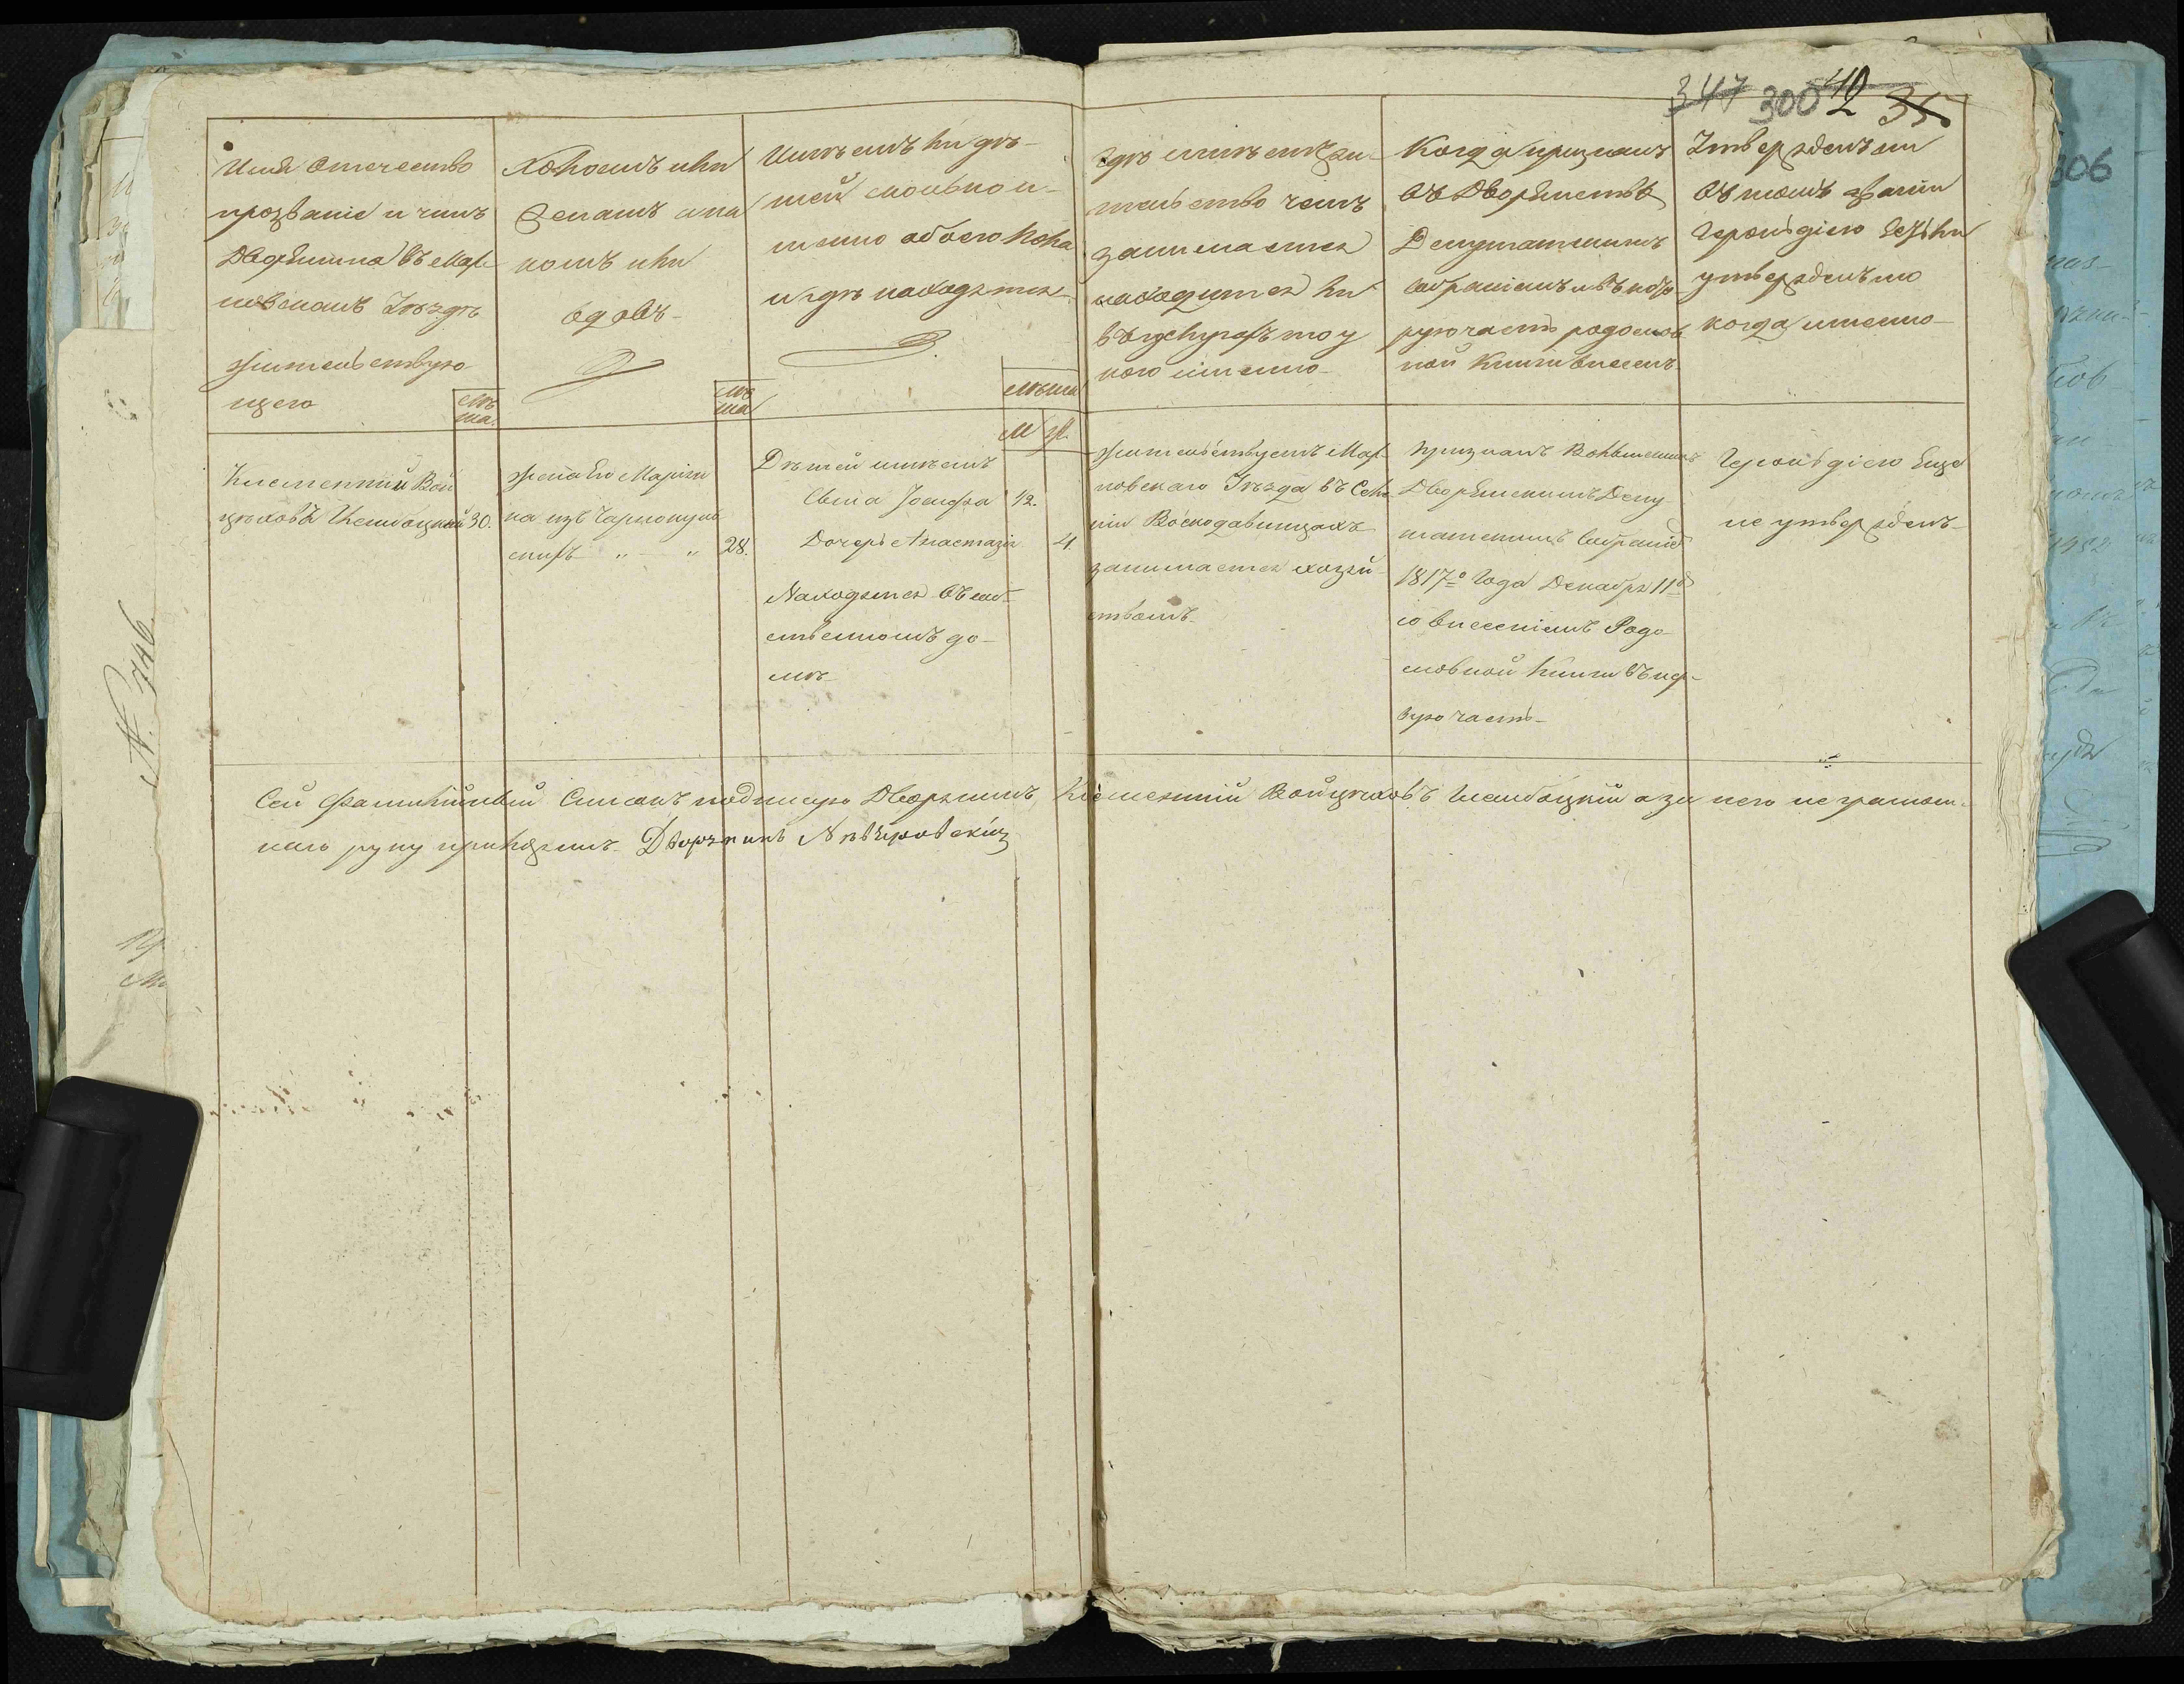 347 300 40 2 35
Имя Отечество
прозваніе и чинъ
Дворянина въ Мар-
повскомъ Уѣздѣ
жительствую
щего
лѣ
та.
Холостъ или
Женатъ и на
комъ или
вдовъ-
лѣ
та
Имѣетъ ли дѣ-
тей сколько и-
менно обоего пола
и гдѣ находятся
лѣта
М ж.
гдѣ имѣетъ жи-
тельство чемъ
занимается
находится ли
въ услугахъ то у
кого именно
Когда признанъ
въ Дворянствѣ
Депутатскимъ
собраніемъ и въ кото
рую часть родослов
ной Книги внесенъ
Утвержденъ ли
въ томъ званіи
Герольдіею Если
утвержденъ то
когда именно
Клементій Вой
цѣховъ 30.
Жена Его Марія
на изъ
28.
Дѣтей имѣетъ
Сына Іосифа 12.
Дочерь Анастазія 4.
Находятся въ соб-
ственномъ до-
мѣ
Жительствуетъ Мар-
повскаго Уѣзда въ Селе
ніи Воскодавинцахъ
занимается хозяй-
ствомъ.
признанъ Волынскимъ
Дворянскимъ Депу
татскимъ Собраніе
1817го Года Декабря 11го
со внесеніемъ Родо
словной Книги въ пер-
вую часть-
Герольдіею Еще
не утвержденъ
Сей Фамилійный Списокъ подписую Дворянинъ Клементій Войцѣховъ а за него неграмот-
наго руку приложилъ Дворянинъ
N. 746
306